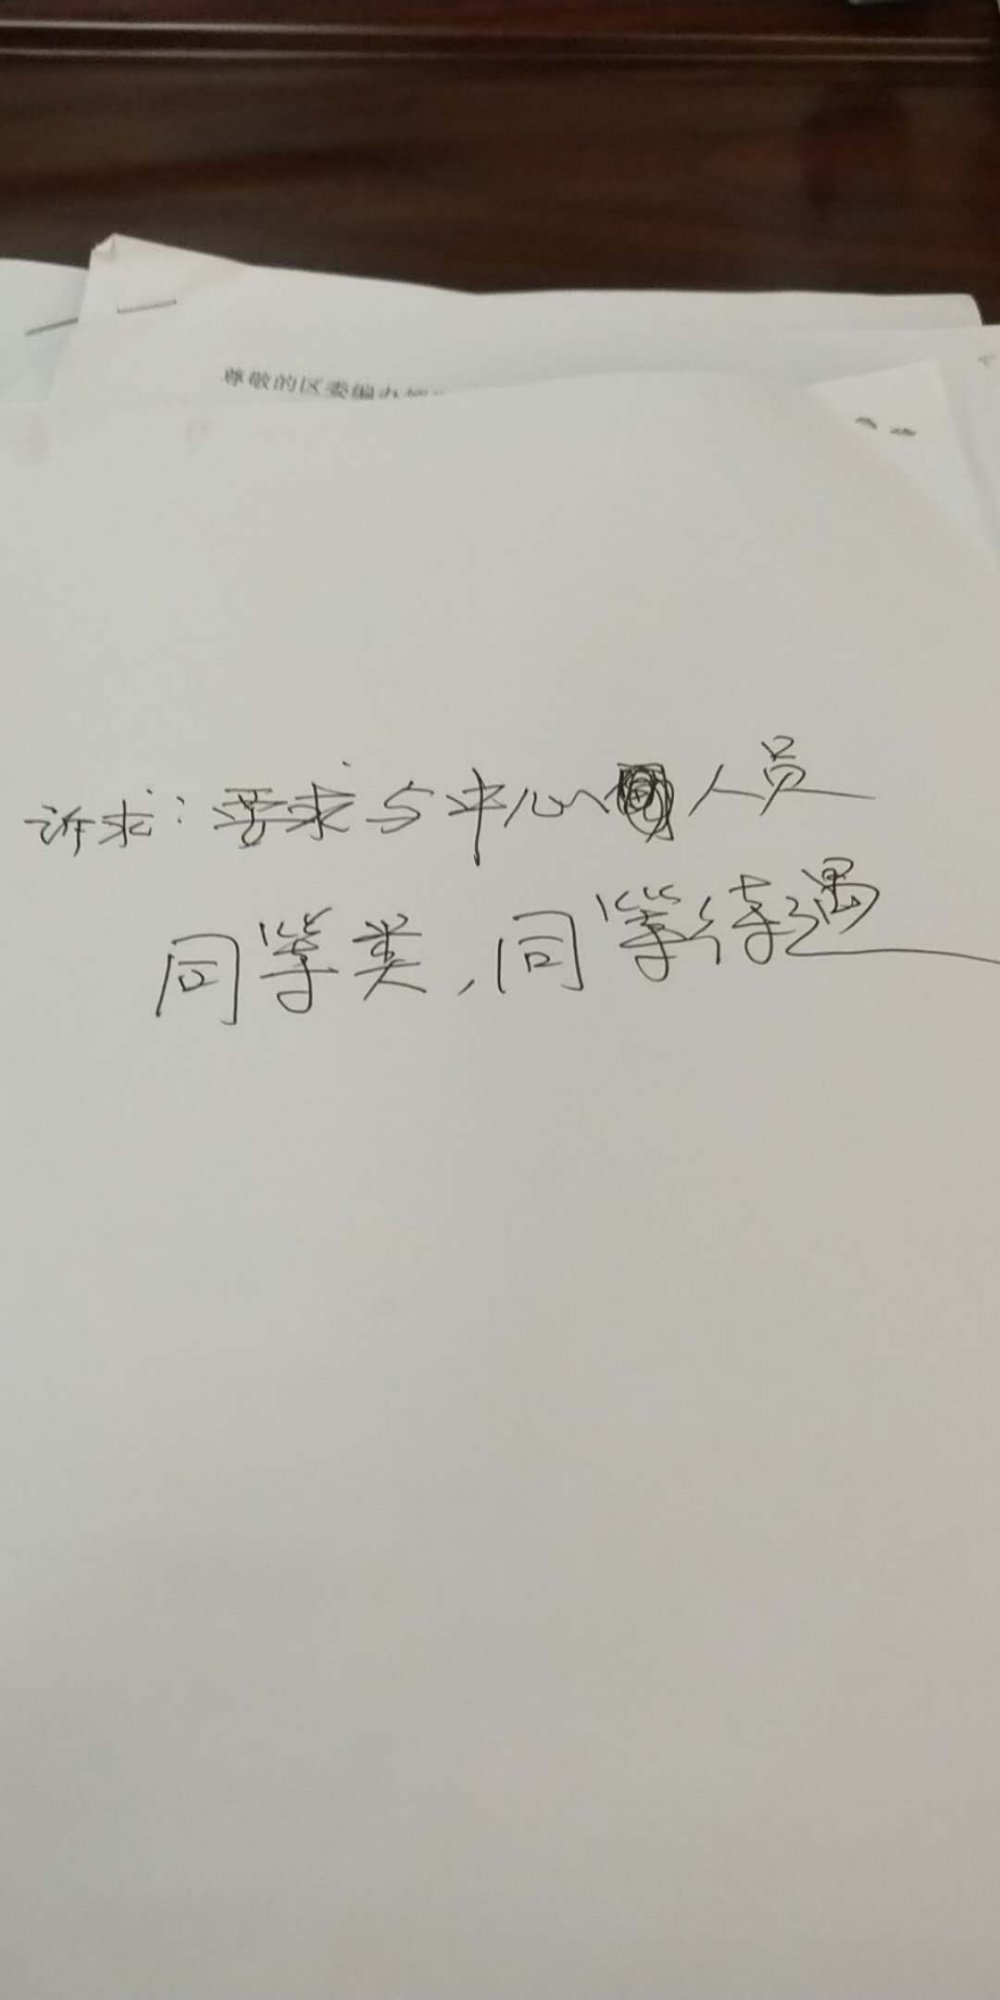 尊敬的区委编办
诉求：要求与中心人员
同等类，同等待遇